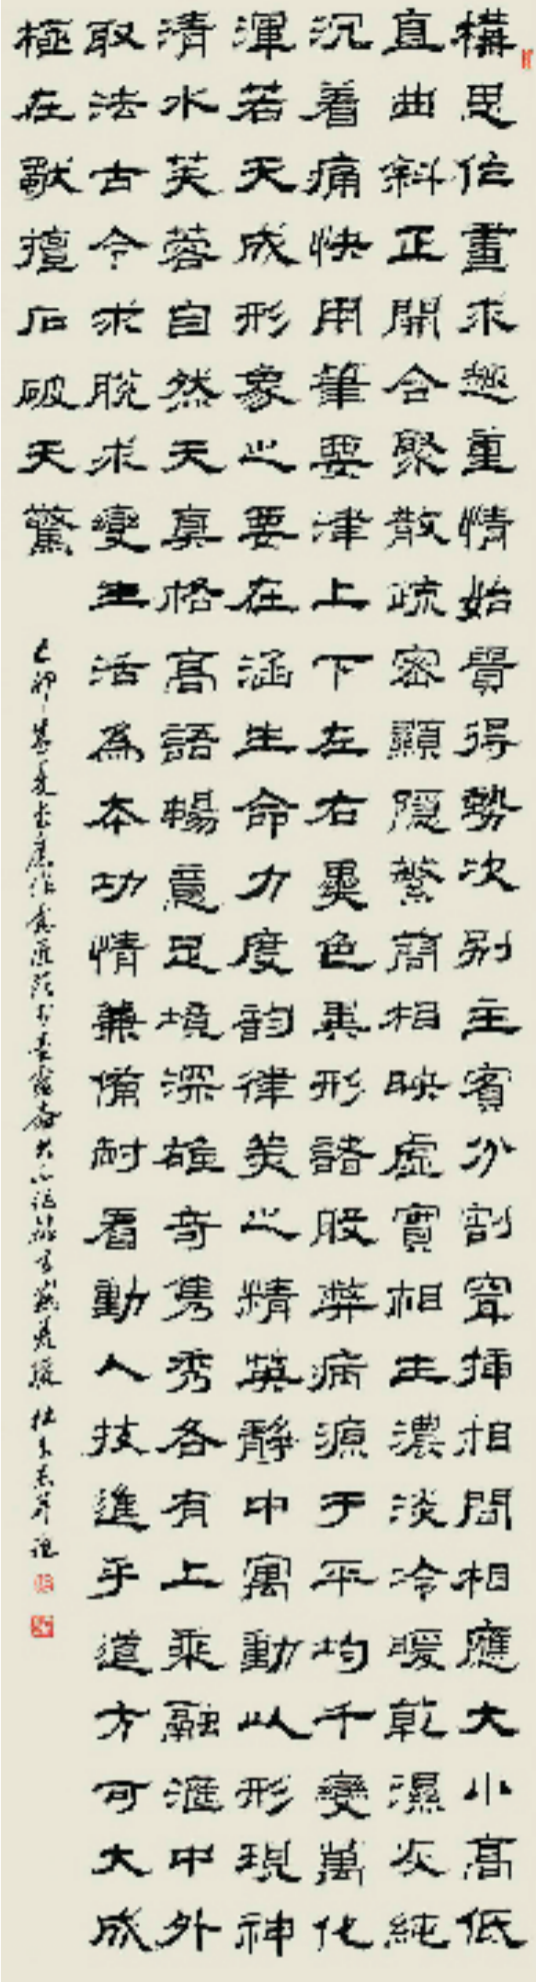 構思作畫求趣重情始貴得勢次別主賓分割穿插相間相應大小高低
直曲斜正開合聚散疏密顯隱繁簡相映虛實相生濃淡冷暖乾濕灰純
沉着痛快用筆要津上下左右墨色異形諸般弊病源于平均千變萬化
渾若天成形象之要在涵生命力度韵律美之精英靜中寓動以形現神
清水芙蓉自然天真格高語暢意足境深雄奇雋秀各有上乘融滙中外
取法古今求脫求變生活為本功情兼備耐看動人技進乎道方可大成
極在歡壇石破天驚